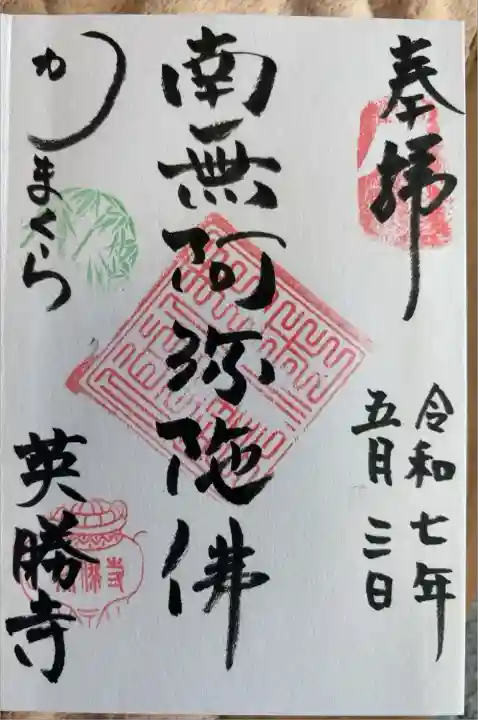 奉拝
令和七年
五月三日
南無阿弥陀佛
かまくら
英勝寺